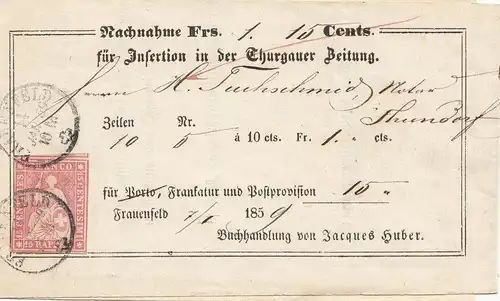 Nachnahme Frs. 1. 15 Cents.
für Insertion in der Thurgauer Zeitung.
Herrn H. Tuchschmid, Notar
Thundorf
Zeilen Nr.
10 5 à 10 cts. Fr. 1. „ cts.
für Porto, Frankatur und Postprovision 15 „
Frauenfeld 7/1 1859
Buchhandlung von Jacques Huber.
FRAUENFELD
FRANCO
15 RAPPEN
15 CENTIMES
FRAUENFELD